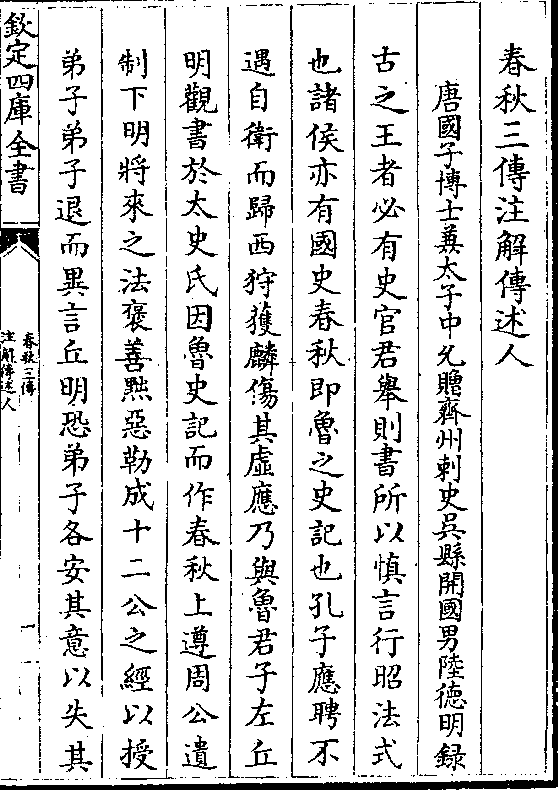 春秋三傳注解傳述人
唐國子博士兼太子中允贈齊州刺史吳縣開國男陸德明録
古之王者必有史官君舉則書所以慎言行昭法式
也諸侯亦有國史春秋即魯之史記也孔子應聘不
遇自衛而歸西狩獲麟傷其虛應乃與魯君子左丘
明觀書於太史氏因魯史記而作春秋上遵周公遺
制下明將來之法褒善黜惡勒成十二公之經以授
弟子弟子退而異言丘明恐弟子各安其意以失其
欽定四庫全書
春秋三傳
注解傳述人
一